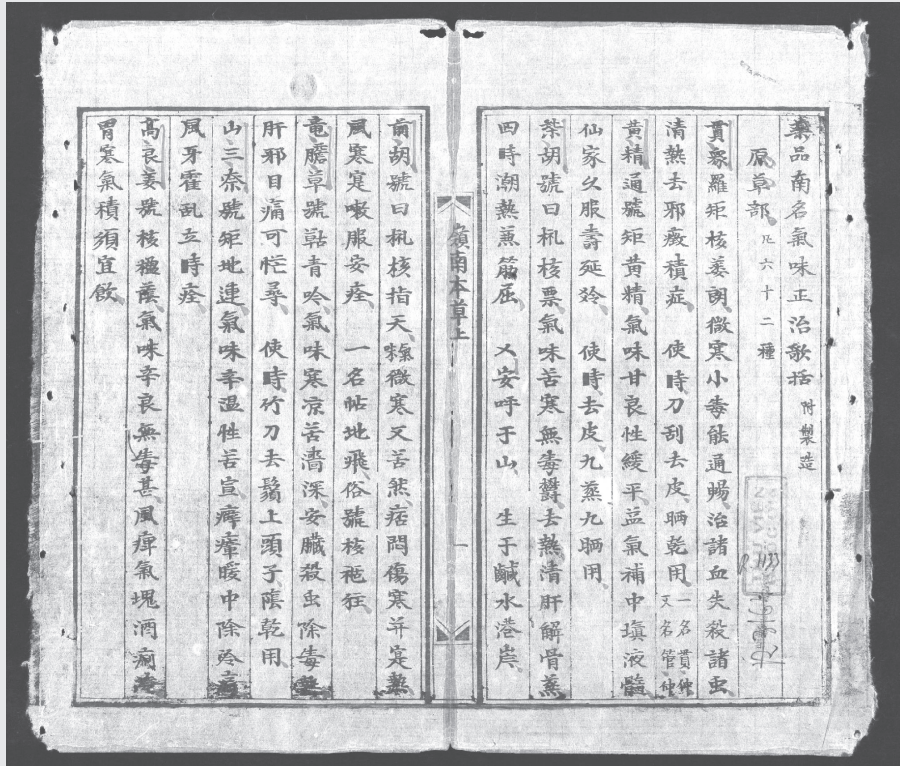 藥品南名氣味正治歌括 附製造
原草部 凡六十二種
貫眾羅矩核蒌朗微寒小毒能通暢治諸血失殺諸虫
清熱去邪癥積症 使時刀刮去皮晒乾用 又名管仲 一名貫仲
黃精通號矩黃精氣味甘良性緩平益氣補中瑱液髓
仙家久服壽延 使時去皮九蒸九晒用
柴胡號曰 核票氣味苦寒無毒欝去熱清肝解骨蒸
四時潮熱蒸筋屈 乂安呼于山 生于鹹水港岸
嶺南本草上
一
前胡號曰 核指天 微寒又苦能痞悶傷寒并寔熱
風寒寔嗽服安痊 一名帖地飛俗號核 狂
竜膽草號 青吟氣味寒凉苦濇深安臟殺虫除毒
肝邪目痛可忙尋 使時竹刀去鬚上頭子陰乾用
山三柰號矩地連氣味辛温性苦宣 暖中除
風牙霍乱立時痊
高良姜號核 蔭氣味辛良無毒甚風痺氣塊酒痢
胃寒氣積須宜飲